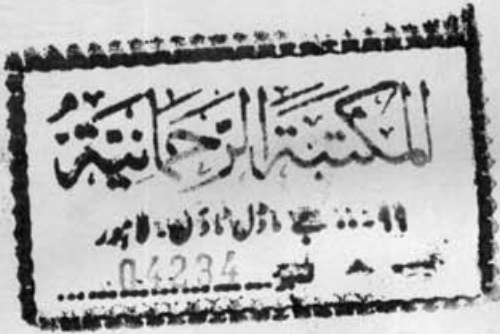 المكتبة الرحمانية
۹۹... جے ماڈل ٹاؤن۔ لاہور
نمبر ......04234......